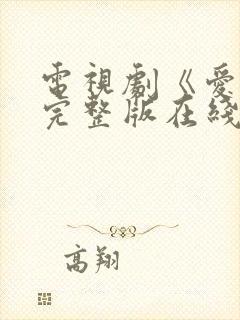 電視劇《愛
完整版在綫
高翔